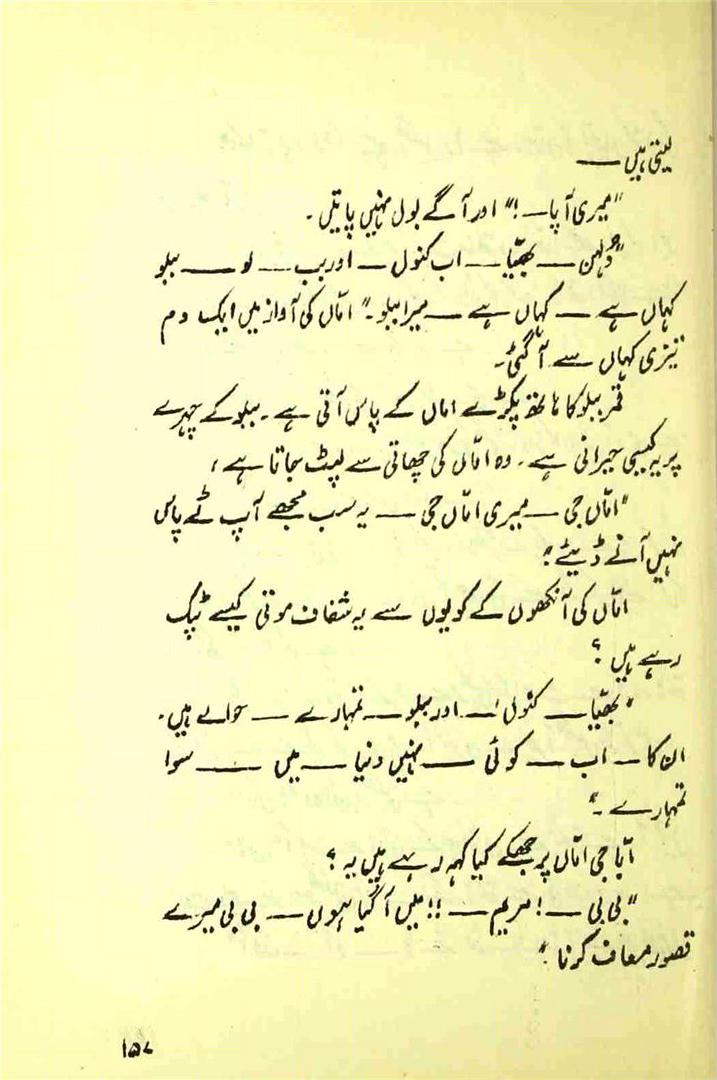 لیتی ہیں ——
"میری آپا —!" اور آگے بول نہیں پاتیں۔
"دُلہن — بھیّا — اب کنول — اور بب — لو — ببلو
کہاں ہے — کہاں ہے — میرا ببلو۔" امّاں کی آواز میں ایک دم
تیزی کہاں سے آ گئی۔
قمر ببلو کا ہاتھ پکڑے اماں کے پاس آتی ہے۔ ببلو کے چہرے
پر یہ کیسی حیرانی ہے۔ وہ امّاں کی چھاتی سے لپٹ جاتا ہے،
"امّاں جی — میری امّاں جی — یہ سب مجھے آپ ٹے پاس
نہیں آنے ڈیٹے۔"
امّاں کی آنکھوں کے کویوں سے یہ شفاف موتی کیسے ٹپک
رہے ہیں؟
"بھیّا — کنول — اور ببلو — تمہارے — حوالے ہیں۔
ان کا — اب — کوئی — نہیں دنیا — میں — سوا
تمہارے —"
ابّا جی امّاں پر جھکے کیا کہہ رہے ہیں یہ؟
"بی بی —! مریم —!! میں آ گیا ہوں — بی بی میرے
قصور معاف کرنا۔"
۱۵۷